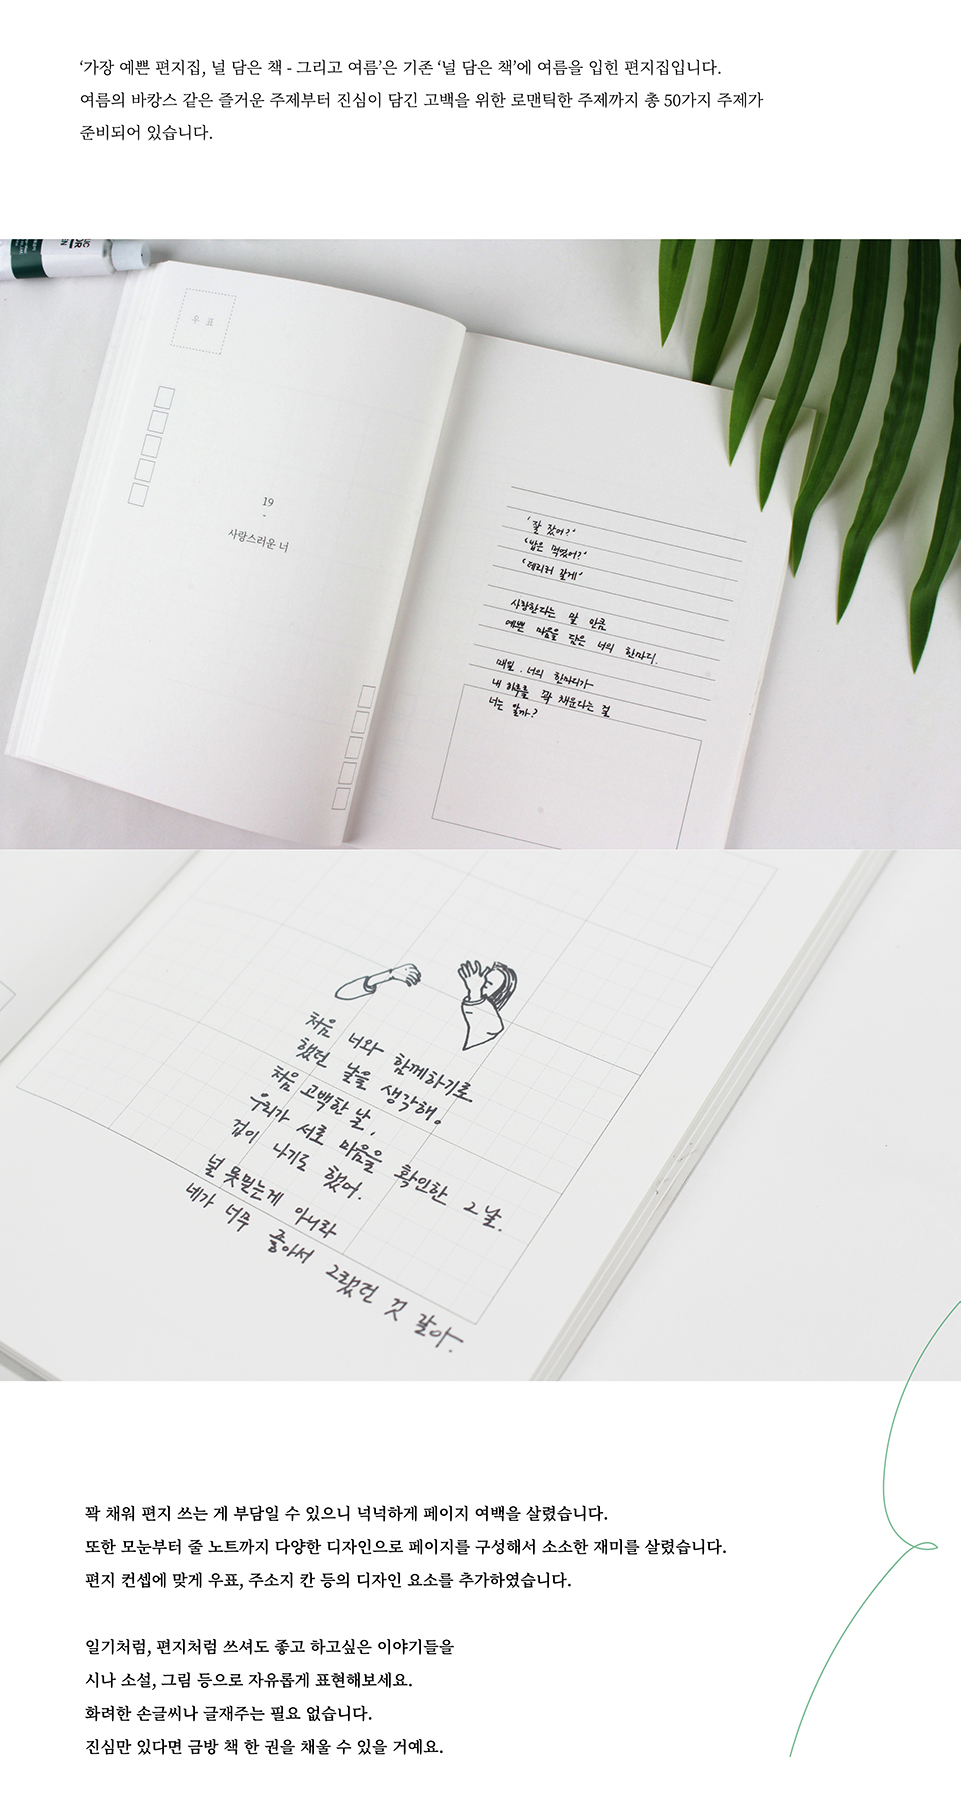 ‘가장 예쁜 편지집, 널 담은 책 - 그리고 여름’은 기존 ‘널 담은 책’에 여름을 입힌 편지집입니다.
여름의 바캉스 같은 즐거운 주제부터 진심이 담긴 고백을 위한 로맨틱한 주제까지 총 50가지 주제가
준비되어 있습니다.
우 표
19
-
사랑스러운 너
‘잘 잤어?’
‘밥은 먹었어?’
‘데리러 갈게’
사랑한다는 말 만큼
예쁜 마음을 담은 너의 한마디.
매일. 너의 한마디가
내 하루를 꽉 채운다는 걸
너는 알까?
처음 너와 함께하기로
했던 날을 생각해.
처음 고백한 날,
우리가 서로 마음을 확인한 그 날.
겁이 나기도 했어.
널 못믿는게 아니라
네가 너무 좋아서 그랬던 것 같아.
꽉 채워 편지 쓰는 게 부담일 수 있으니 넉넉하게 페이지 여백을 살렸습니다.
또한 모눈부터 줄 노트까지 다양한 디자인으로 페이지를 구성해서 소소한 재미를 살렸습니다.
편지 컨셉에 맞게 우표, 주소지 칸 등의 디자인 요소를 추가하였습니다.
일기처럼, 편지처럼 쓰셔도 좋고 하고싶은 이야기들을
시나 소설, 그림 등으로 자유롭게 표현해보세요.
화려한 손글씨나 글재주는 필요 없습니다.
진심만 있다면 금방 책 한 권을 채울 수 있을 거예요.